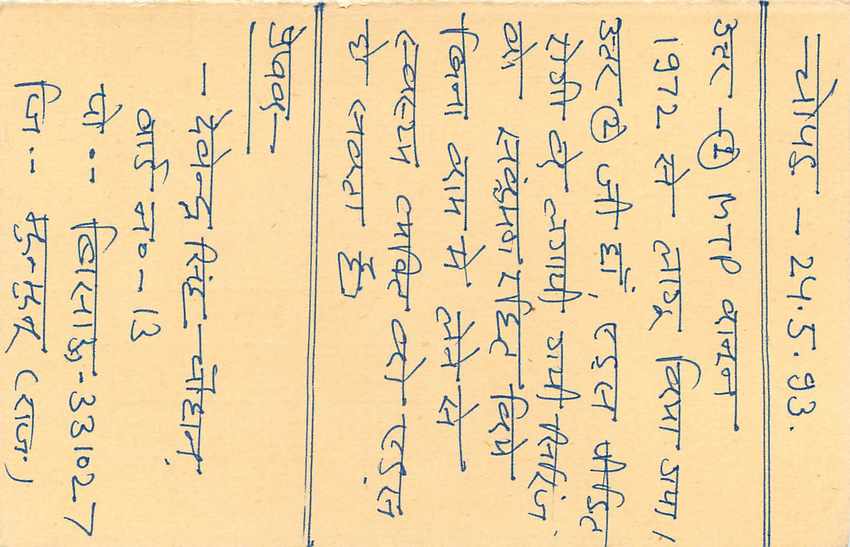 चौपड़ - 24.5.93.
उत्तर - ① MTP कानून
1972 से लागू किया गया।
उत्तर ② जी हाँ, एड्स पीड़ित
रोगी के लगायी गयी सिरिंज
को संक्रमण रहित किये
बिना काम में लेने से
स्वस्थ व्यक्ति को एड्स
हो सकता है
प्रेषक -
- देवेन्द्र सिंह चौहान,
वार्ड न० - 13
पो. - बिसाऊ - 331027
जि. - झुन्झुनू (राज.)